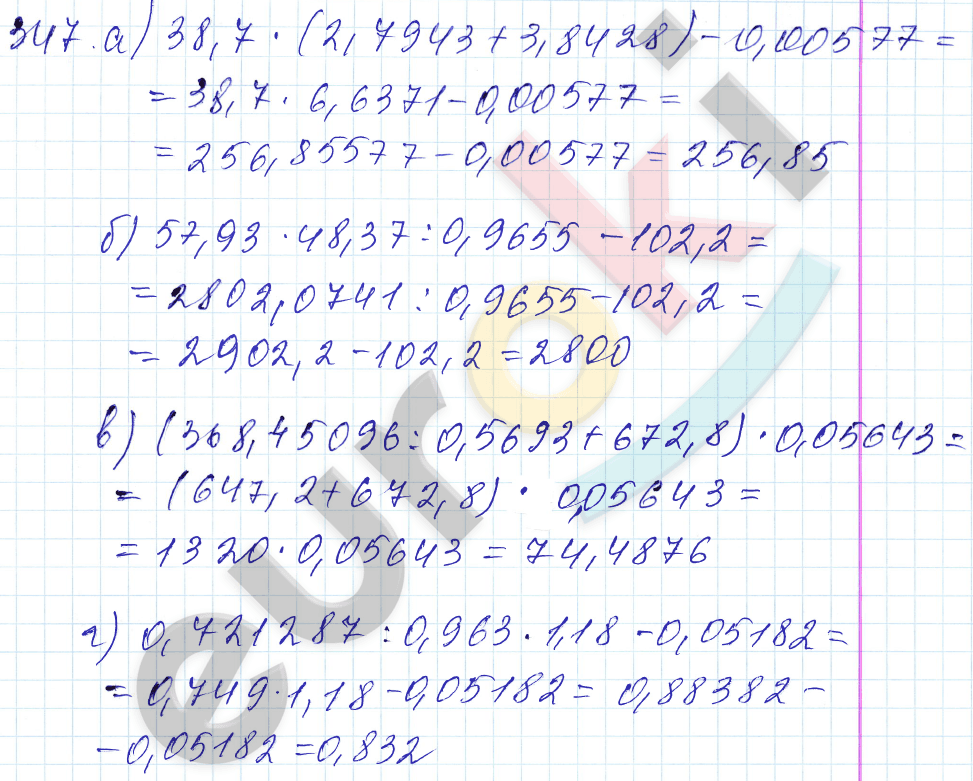 347. а) 38,7 · (2,7943 + 3,8428) - 0,00577 =
= 38,7 · 6,6371 - 0,00577 =
= 256,85577 - 0,00577 = 256,85
б) 57,93 · 48,37 : 0,9655 - 102,2 =
= 2802,0741 : 0,9655 - 102,2 =
= 2902,2 - 102,2 = 2800
в) (368,45096 : 0,5693 + 672,8) · 0,05643 =
= (647,2 + 672,8) · 0,05643 =
= 1320 · 0,05643 = 74,4876
г) 0,721287 : 0,963 · 1,18 - 0,05182 =
= 0,749 · 1,18 - 0,05182 = 0,88382 -
- 0,05182 = 0,832
euroki